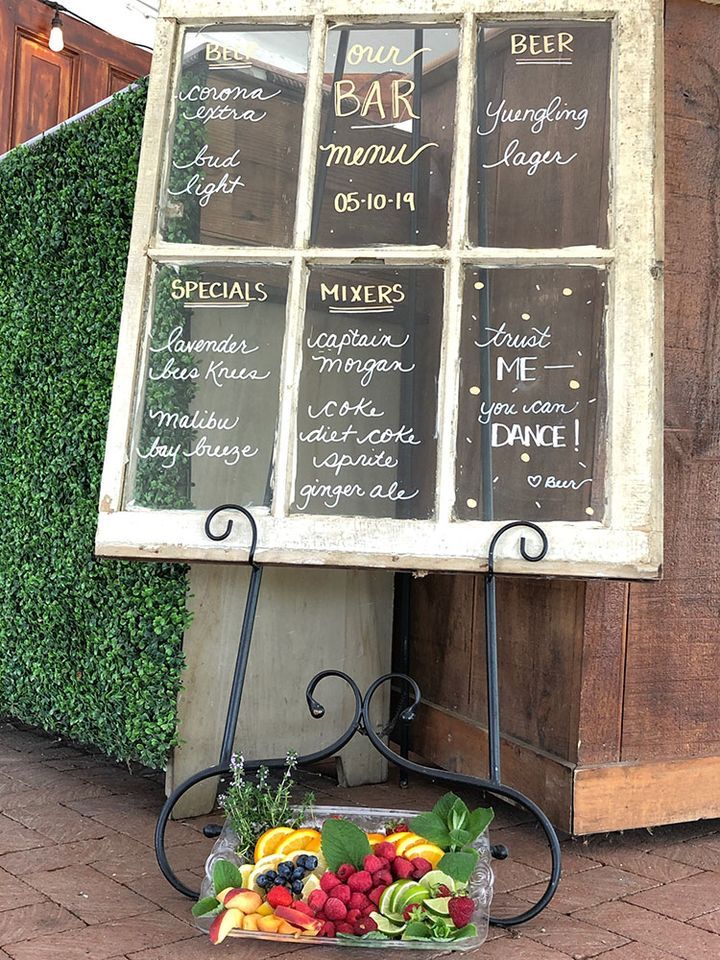 BEER
corona
extra
bud
light
our
BAR
menu
05-10-19
BEER
Yuengling
lager
SPECIALS
lavender
bees Knees
malibu
bay breeze
MIXERS
captain
morgan
coke
diet coke
sprite
ginger ale
trust
ME —
you can
DANCE!
♡ Beer